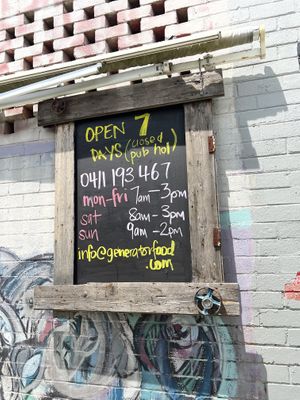 OPEN 7
DAYS (closed
pub hol)
0411 193 467
mon-fri 7am-3pm
sat 8am-3pm
sun 9am-2pm
info@generatorfood
.com